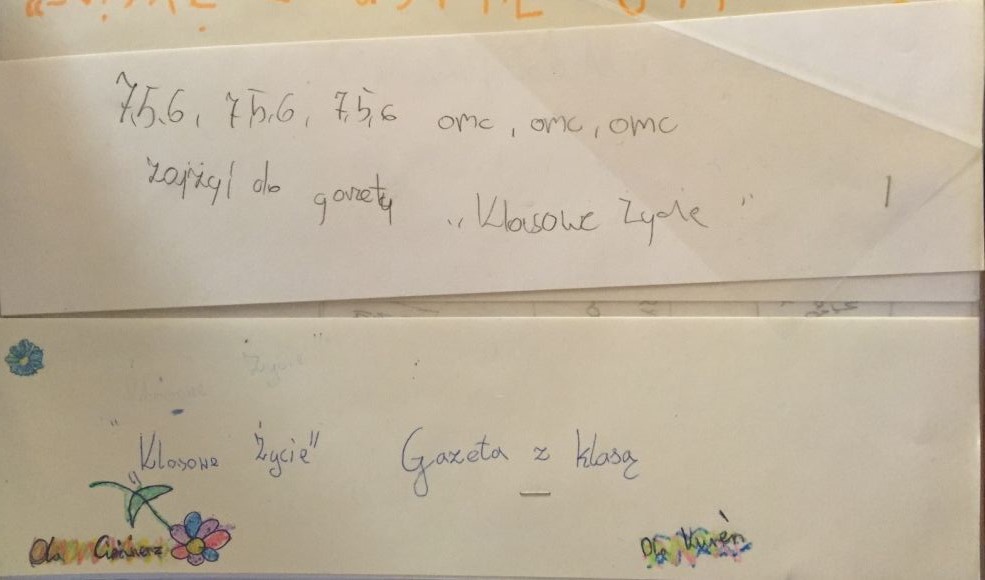 7,5,6, 7,5,6, 7,5,6 omc, omc, omc
zajżyj do gazety „Klasowe Życie"
"Klasowe Życie" Gazeta z klasą
Ola Ola